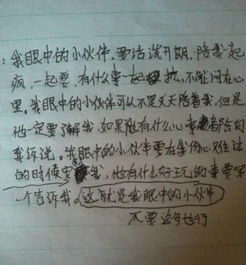 ：我眼中的小伙伴，要活泼开朗，陪我起
疯，一起耍，有什么事一起扛，不能闷在心
里。我眼中的小伙伴可以不是天天陪着我，但是
他一定要了解我，如果他有什么心事都会向
我诉说。我眼中的小伙伴要在我伤心难过
的时候安我，他有什么好玩的事要第
一个告诉我。这就是我眼中的小伙伴
不要这句也行